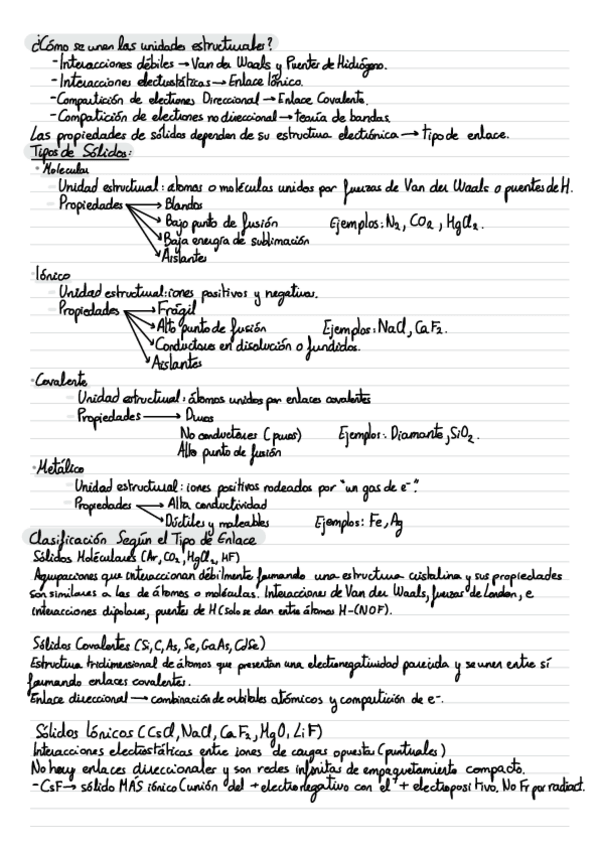 ¿Cómo se unen las unidades estructurales?
- Interacciones débiles → Van der Waals y Puentes de Hidrógeno.
- Interacciones electrostáticas → Enlace Iónico.
- Compartición de electrones Direccional → Enlace Covalente.
- Compartición de electrones no direccional → teoría de bandas.
Las propiedades de sólidos dependen de su estructura electrónica → tipo de enlace.
Tipos de Sólidos:
· Molecular
- Unidad estructural: átomos o moléculas unidos por fuerzas de Van der Waals o puentes de H.
- Propiedades → Blandos
→ Bajo punto de fusión Ejemplos: N₂, CO₂, HgCl₂.
→ Baja energía de sublimación
→ Aislantes
· Iónico
- Unidad estructural: iones positivos y negativos.
- Propiedades → Frágil
→ Alto punto de fusión Ejemplos: NaCl, CaF₂.
→ Conductores en disolución o fundidos.
→ Aislantes
· Covalente
- Unidad estructural: átomos unidos por enlaces covalentes
- Propiedades → Duros
No conductores (puros) Ejemplos: Diamante, SiO₂.
Alto punto de fusión
· Metálico
- Unidad estructural: iones positivos rodeados por "un gas de e⁻".
- Propiedades → Alta conductividad
→ Dúctiles y maleables Ejemplos: Fe, Ag
Clasificación Según el Tipo de Enlace
Sólidos Moléculares (Ar, CO₂, HgCl₂, HF)
Agrupaciones que interaccionan débilmente formando una estructura cristalina y sus propiedades
son similares a las de átomos o moléculas. Interacciones de Van der Waals, fuerzas de London, e
interacciones dipolares, puentes de H (solo se dan entre átomos H-(NOF).
Sólidos Covalentes (Si, C, As, Se, GaAs, CdSe)
Estructura tridimensional de átomos que presentan una electronegatividad parecida y se unen entre sí
formando enlaces covalentes.
Enlace direccional → combinación de orbitales atómicos y compartición de e⁻.
Sólidos Iónicos (CsCl, NaCl, CaF₂, MgO, LiF)
Interacciones electrostáticas entre iones de cargas opuestas (puntuales)
No hay enlaces direccionales y son redes infinitas de empaquetamiento compacto.
- CsF → sólido MÁS iónico (unión del + electronegativo con el + electropositivo. No Fr por radiact.